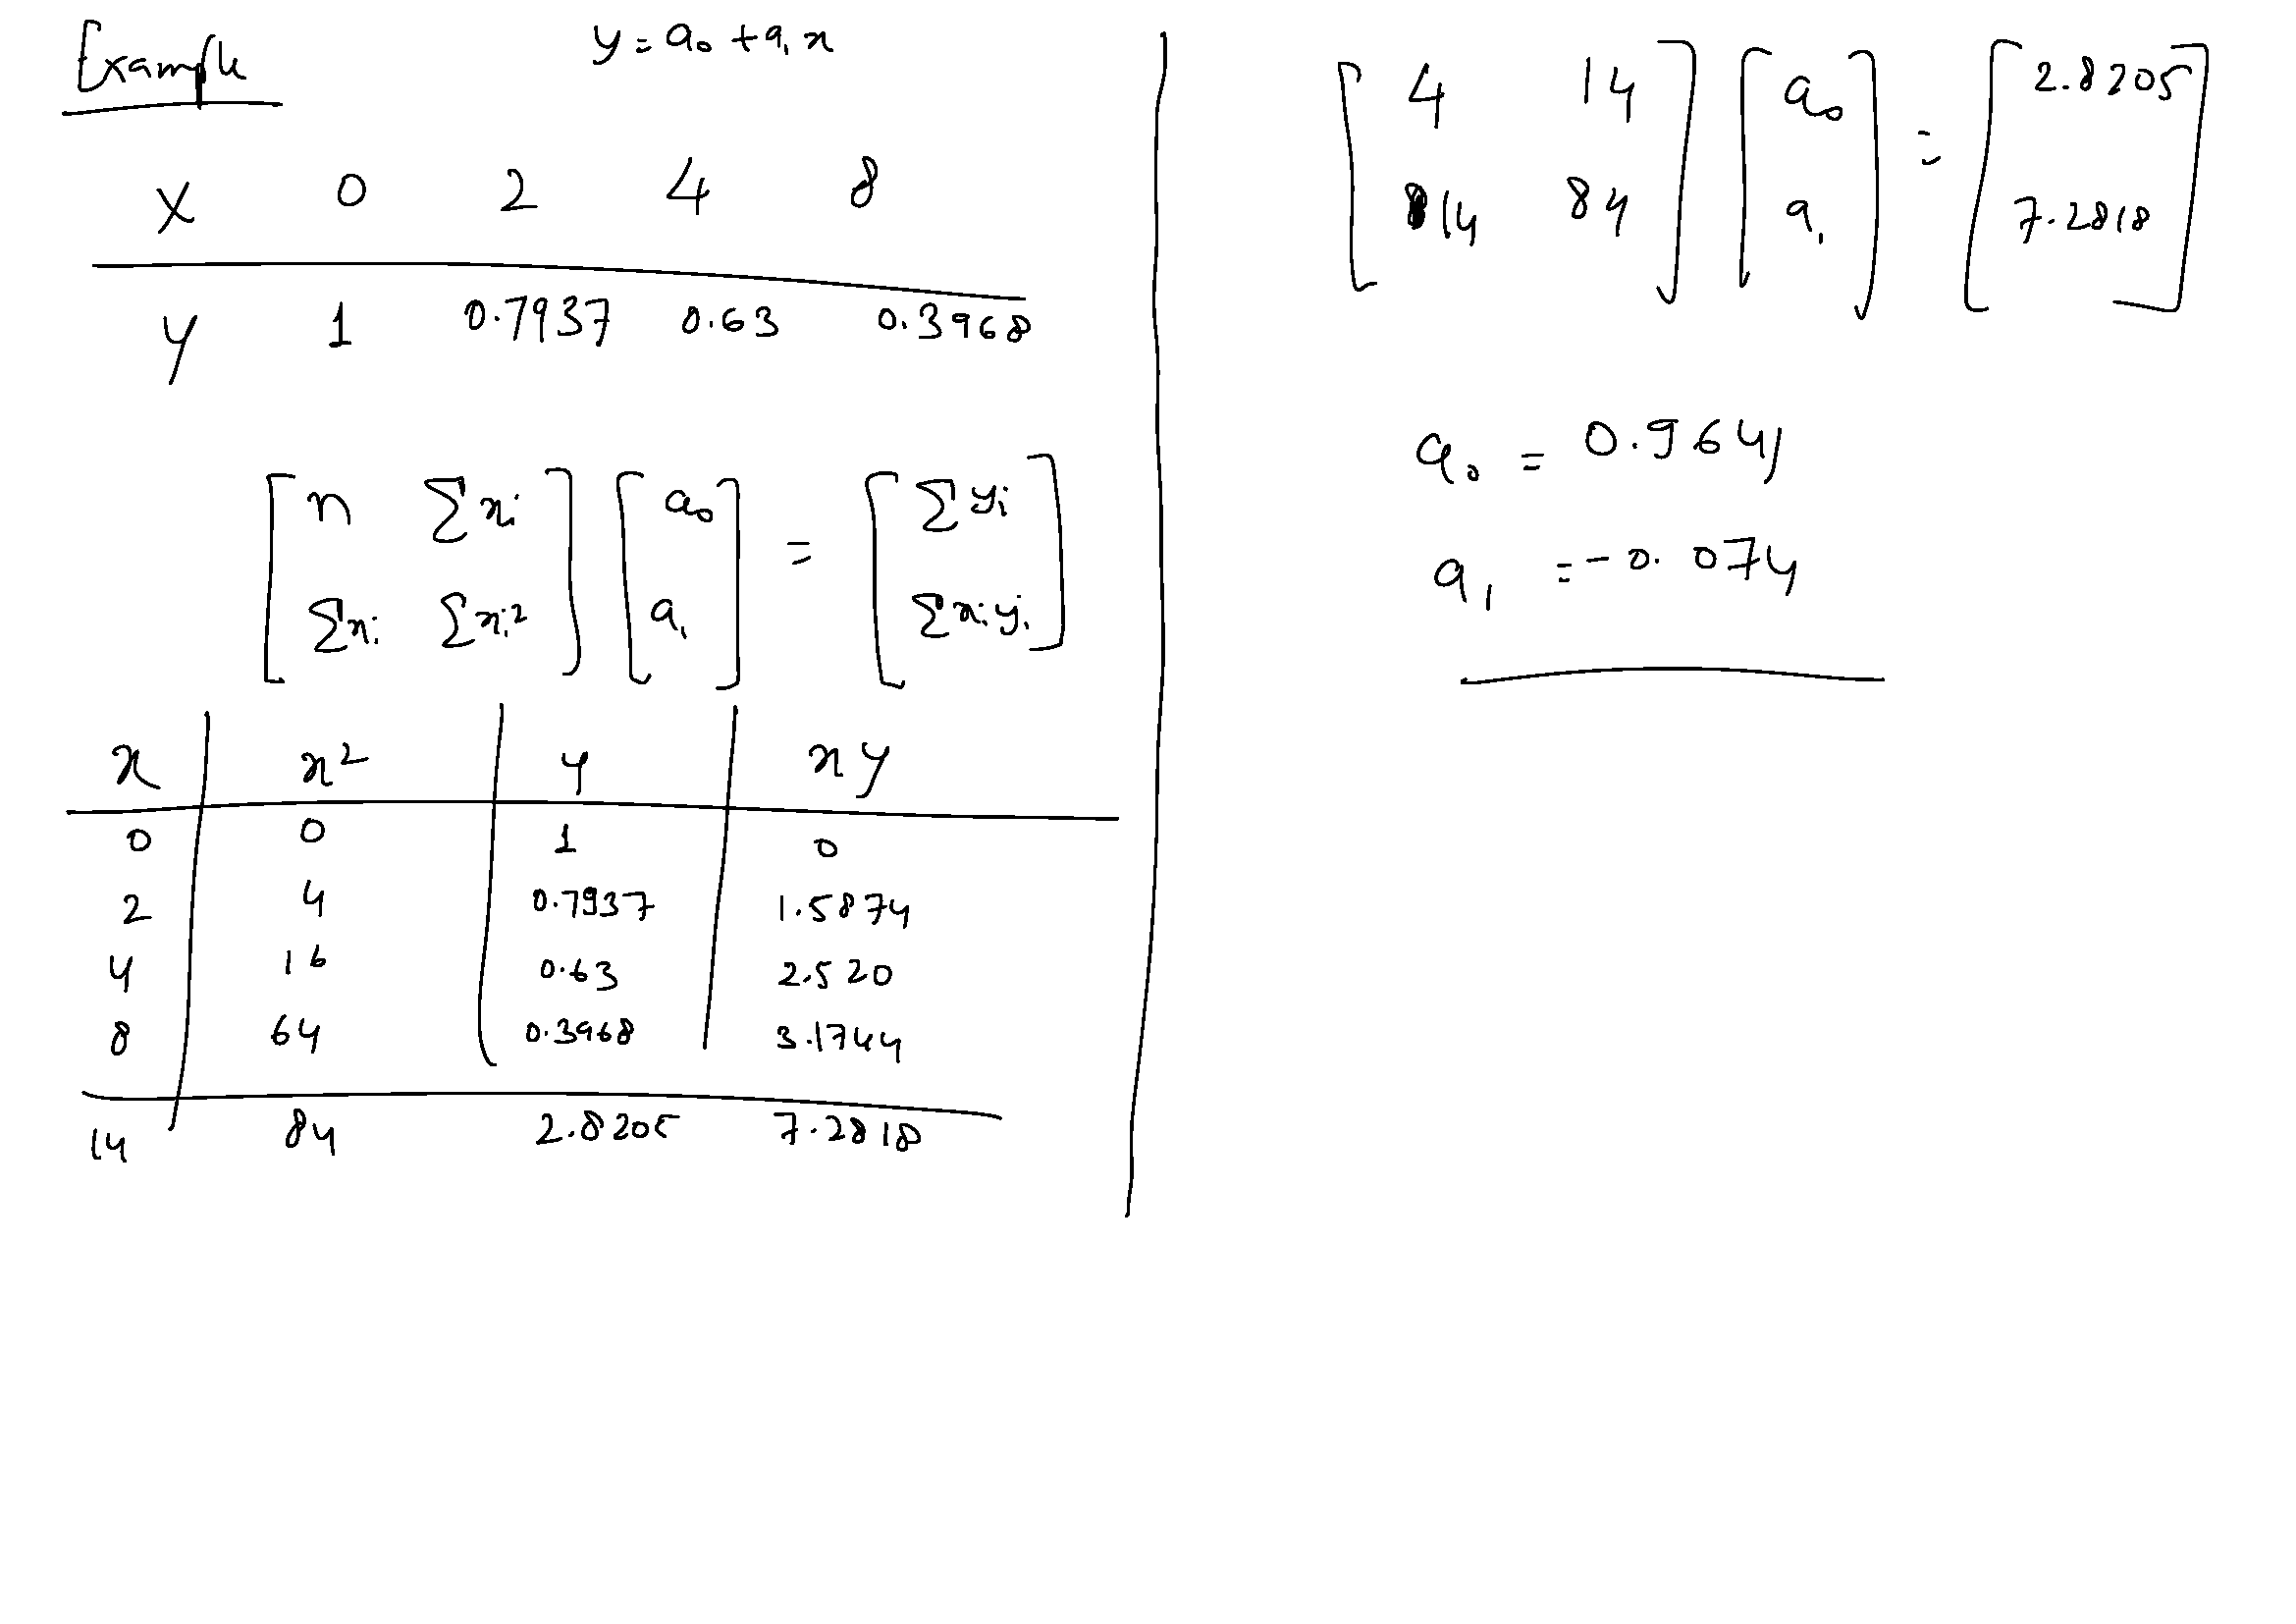 Example
y = a₀ + a₁x
x 0 2 4 8
y 1 0.7937 0.63 0.3968
[ n Σxi ] [ a₀ ] = [ Σyi ]
[ Σxi Σxi² ] [ a₁ ] [ Σxiyi ]
x | x² | y | xy
0 0 1 0
2 4 0.7937 1.5874
4 16 0.63 2.520
8 64 0.3968 3.1744
14 84 2.8205 7.2818
[ 4 14 ] [ a₀ ] = [ 2.8205 ]
[ 14 84 ] [ a₁ ] [ 7.2818 ]
a₀ = 0.964
a₁ = -0.074